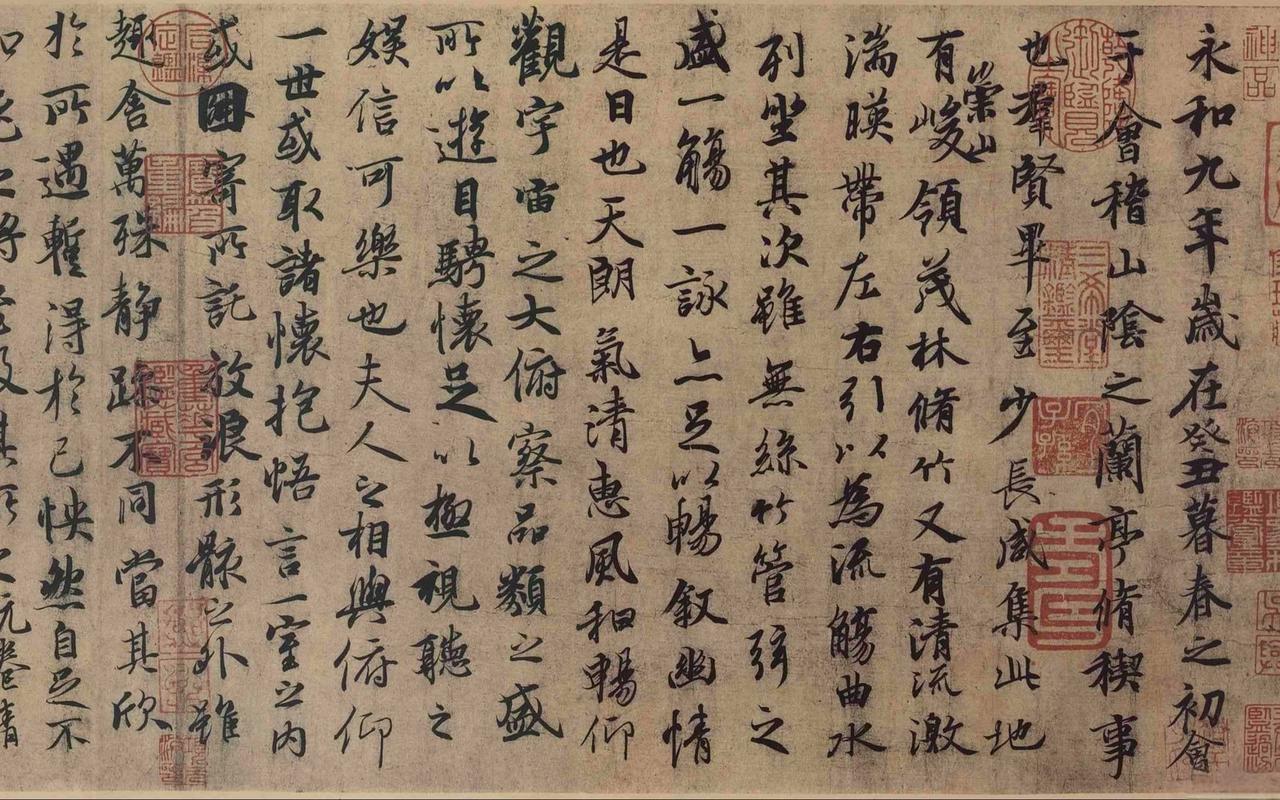 神品
永和九年歲在癸丑暮春之初會
于會稽山陰之蘭亭脩稧事
也羣賢畢至少長咸集此地
有崇山峻領茂林脩竹又有清流激
湍暎帶左右引以為流觴曲水
列坐其次雖無絲竹管弦之
盛一觴一詠亦足以暢敘幽情
是日也天朗氣清惠風和暢仰
觀宇宙之大俯察品類之盛
所以遊目騁懷足以極視聽之
娛信可樂也夫人之相與俯仰
一世或取諸懷抱悟言一室之內
或因寄所託放浪形骸之外雖
趣舍萬殊靜躁不同當其欣
於所遇暫得於己怏然自足不
知老之將至及其所之既惓情
三希堂精鑑璽
宜子孫